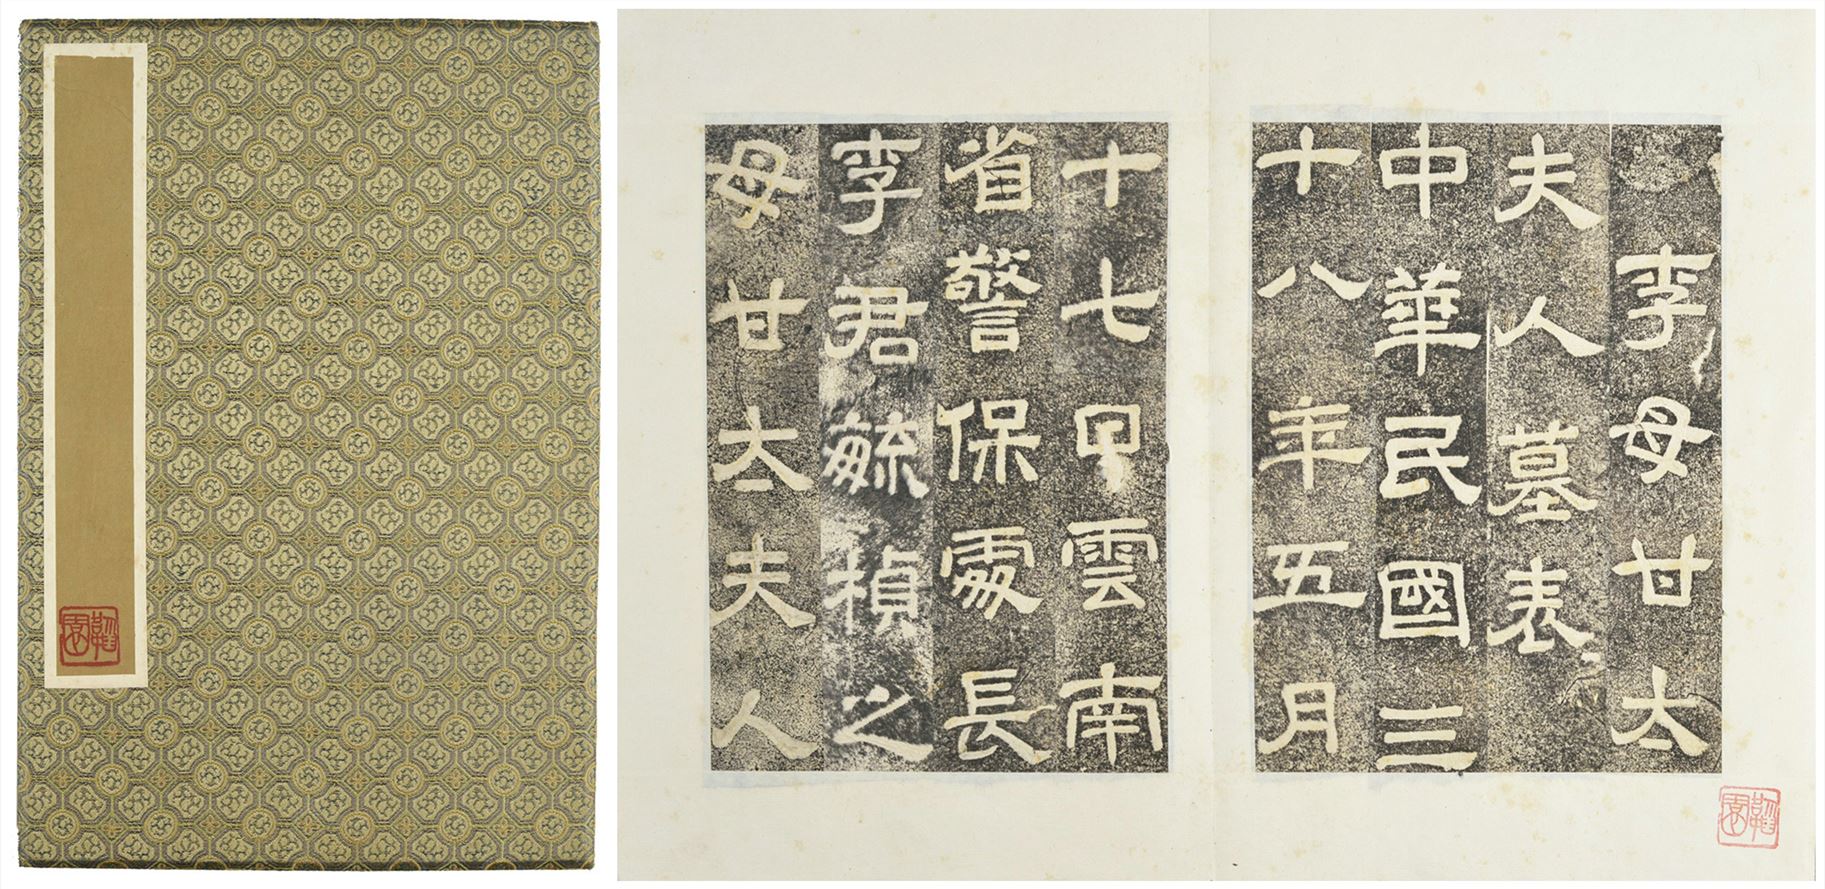 李母甘太
夫人墓表
中華民國三
十八年五月
十七日雲南
省警保處長
李君毓楨之
母甘太夫人